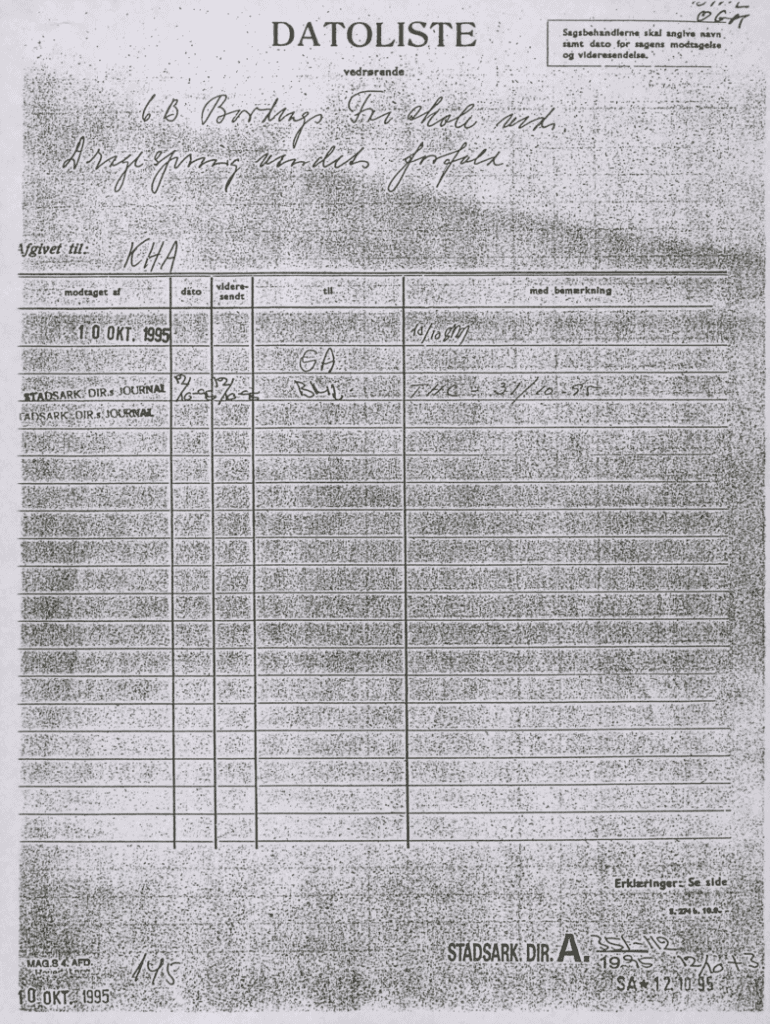 OGK
DATOLISTE
Sagsbehandlerne skal angive navn
samt dato for sagens modtagelse
og videresendelse.
vedrørende
6 B Bordings Fri skole ved.
forfald
Afgivet til: KHA
modtaget af dato videre- sendt til med bemærkning
10 OKT. 1995
GA
STADSARK. DIR.s JOURNAL 12/10-95 12/10-95 31/10-95
STADSARK. DIR.s JOURNAL
Erklæringer: Se side
MAG.S 4. AFD. 145
STADSARK. DIR. A.
1995 12/10
10 OKT. 1995
SA * 12.10.95